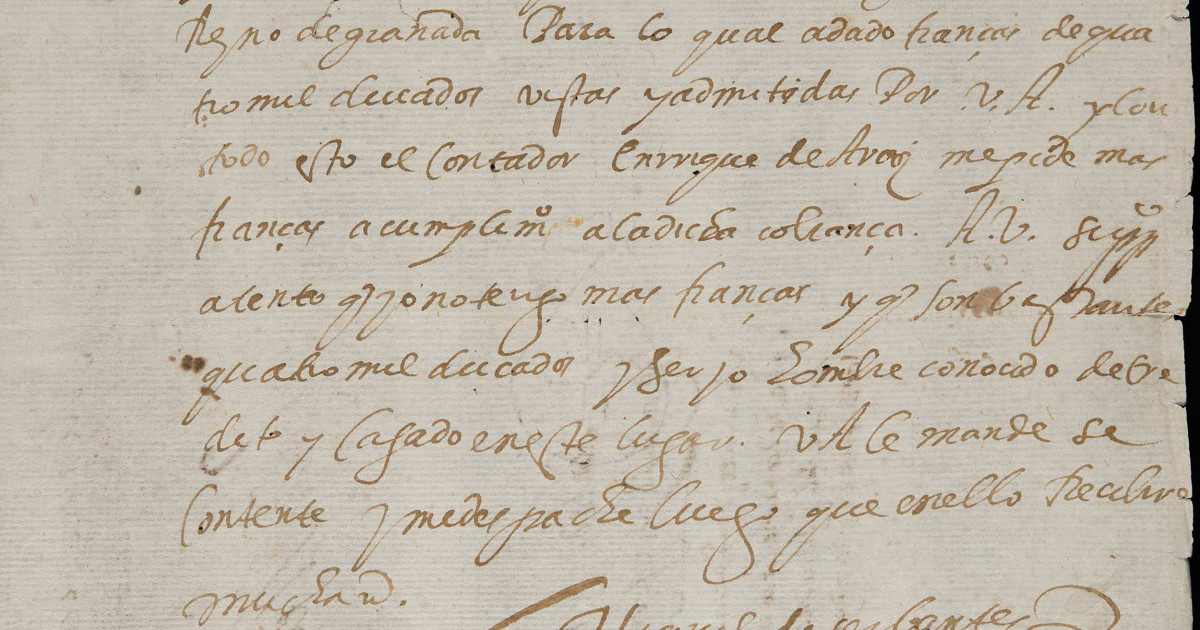 Reyno de granada Para lo qual adado fianças de qua
tro mil ducados vistas y admitidas Por V. A. y con
todo esto el Contador Enrrique de Araiz me pide mas
fianças a cumplimº a la dicha cobrança. A. V. A. suppco
atento q yo no tengo mas fianças y q son bastantes
quatro mil ducados y ser yo hombre conocido de cre
dito y casado en este lugar. V A le mande se
contente y me despache luego que en ello Recibire
mucha md.
Miguel de cerbantes